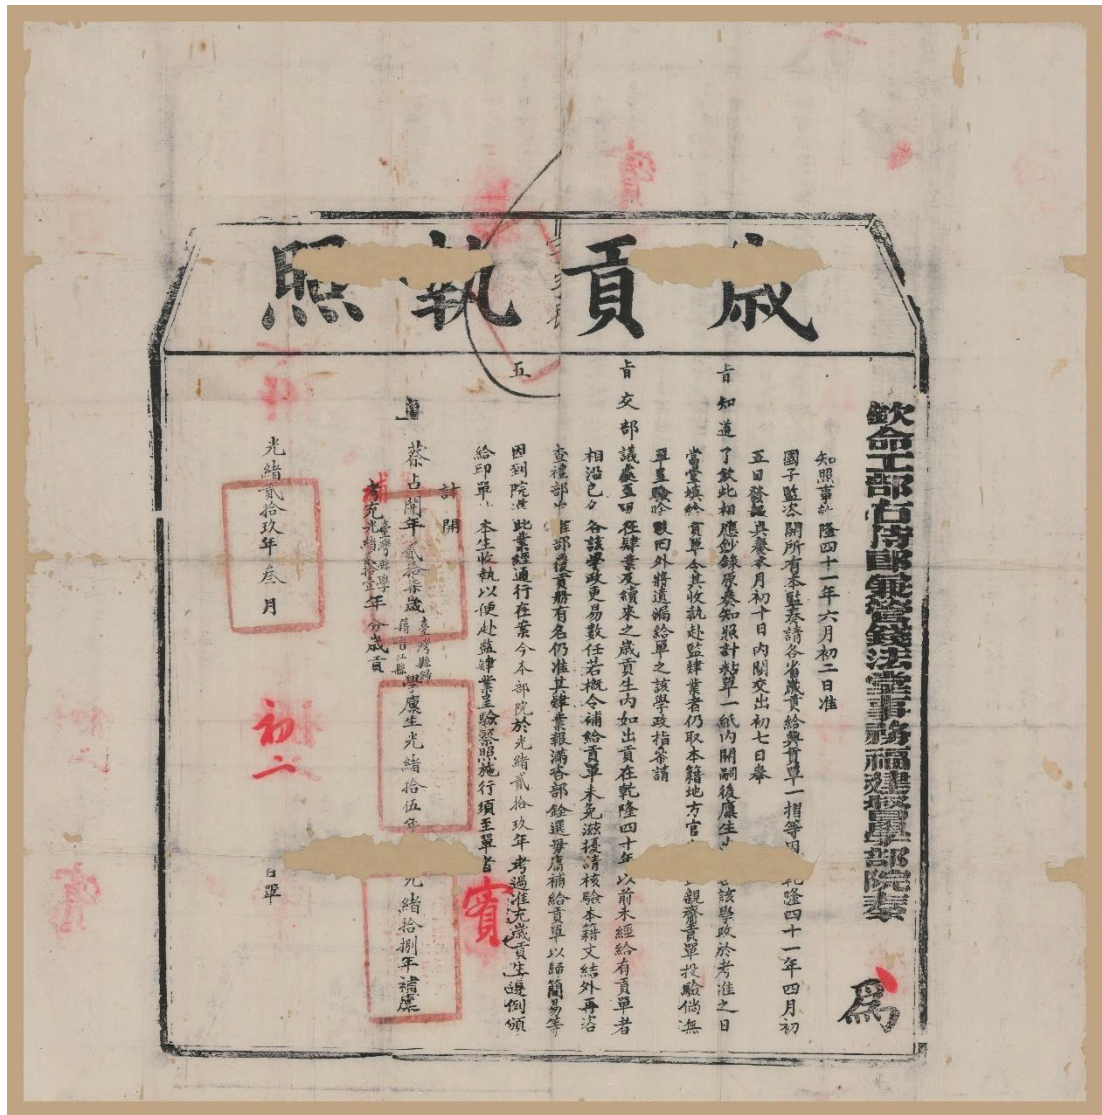 歲貢執照
欽命工部右侍郎兼管錢法堂事務福建督學部院秦
為
知照事
隆四十一年六月初二日准
國子監咨開所有本監奏請各省歲貢給與貢單一摺等因
乾隆四十一年四月初
五日發
具奏本月初十日內閣交出初七日奉
旨知道了欽此相應鈔錄原奏知照計粘單一紙內開嗣後廩生
該學政於考准之日
當堂填給貢單令其收執赴監肄業者仍取本籍地方官
親齎貢單投驗倘無
單呈驗除
內外將遺漏給單之該學政指參請
旨交部議處至現在肄業及續來之歲貢生內如出貢在乾隆四十年以前未經給有貢單者
相沿已久各該學政更易數任若概令補給貢單未免滋擾請核驗本籍文結外再咨
查禮部
准部覆貢冊有名仍准其肄業報滿咨部銓選毋庸補給貢單以歸簡易等
因到院
此業經通行在案今本部院於光緒貳拾玖年考過准充歲貢生
例頒
給印單
本生收執以便赴監肄業呈驗察照施行須至單者
計開
五
蔡占開年貳拾柒歲
臺灣縣歸
籍晉江縣
學廩生光緒拾伍年
光緒拾捌年補廩
補
考充光緒
臺灣縣學
年分歲貢
光緒貳拾玖年叁月
初二
日單
賓